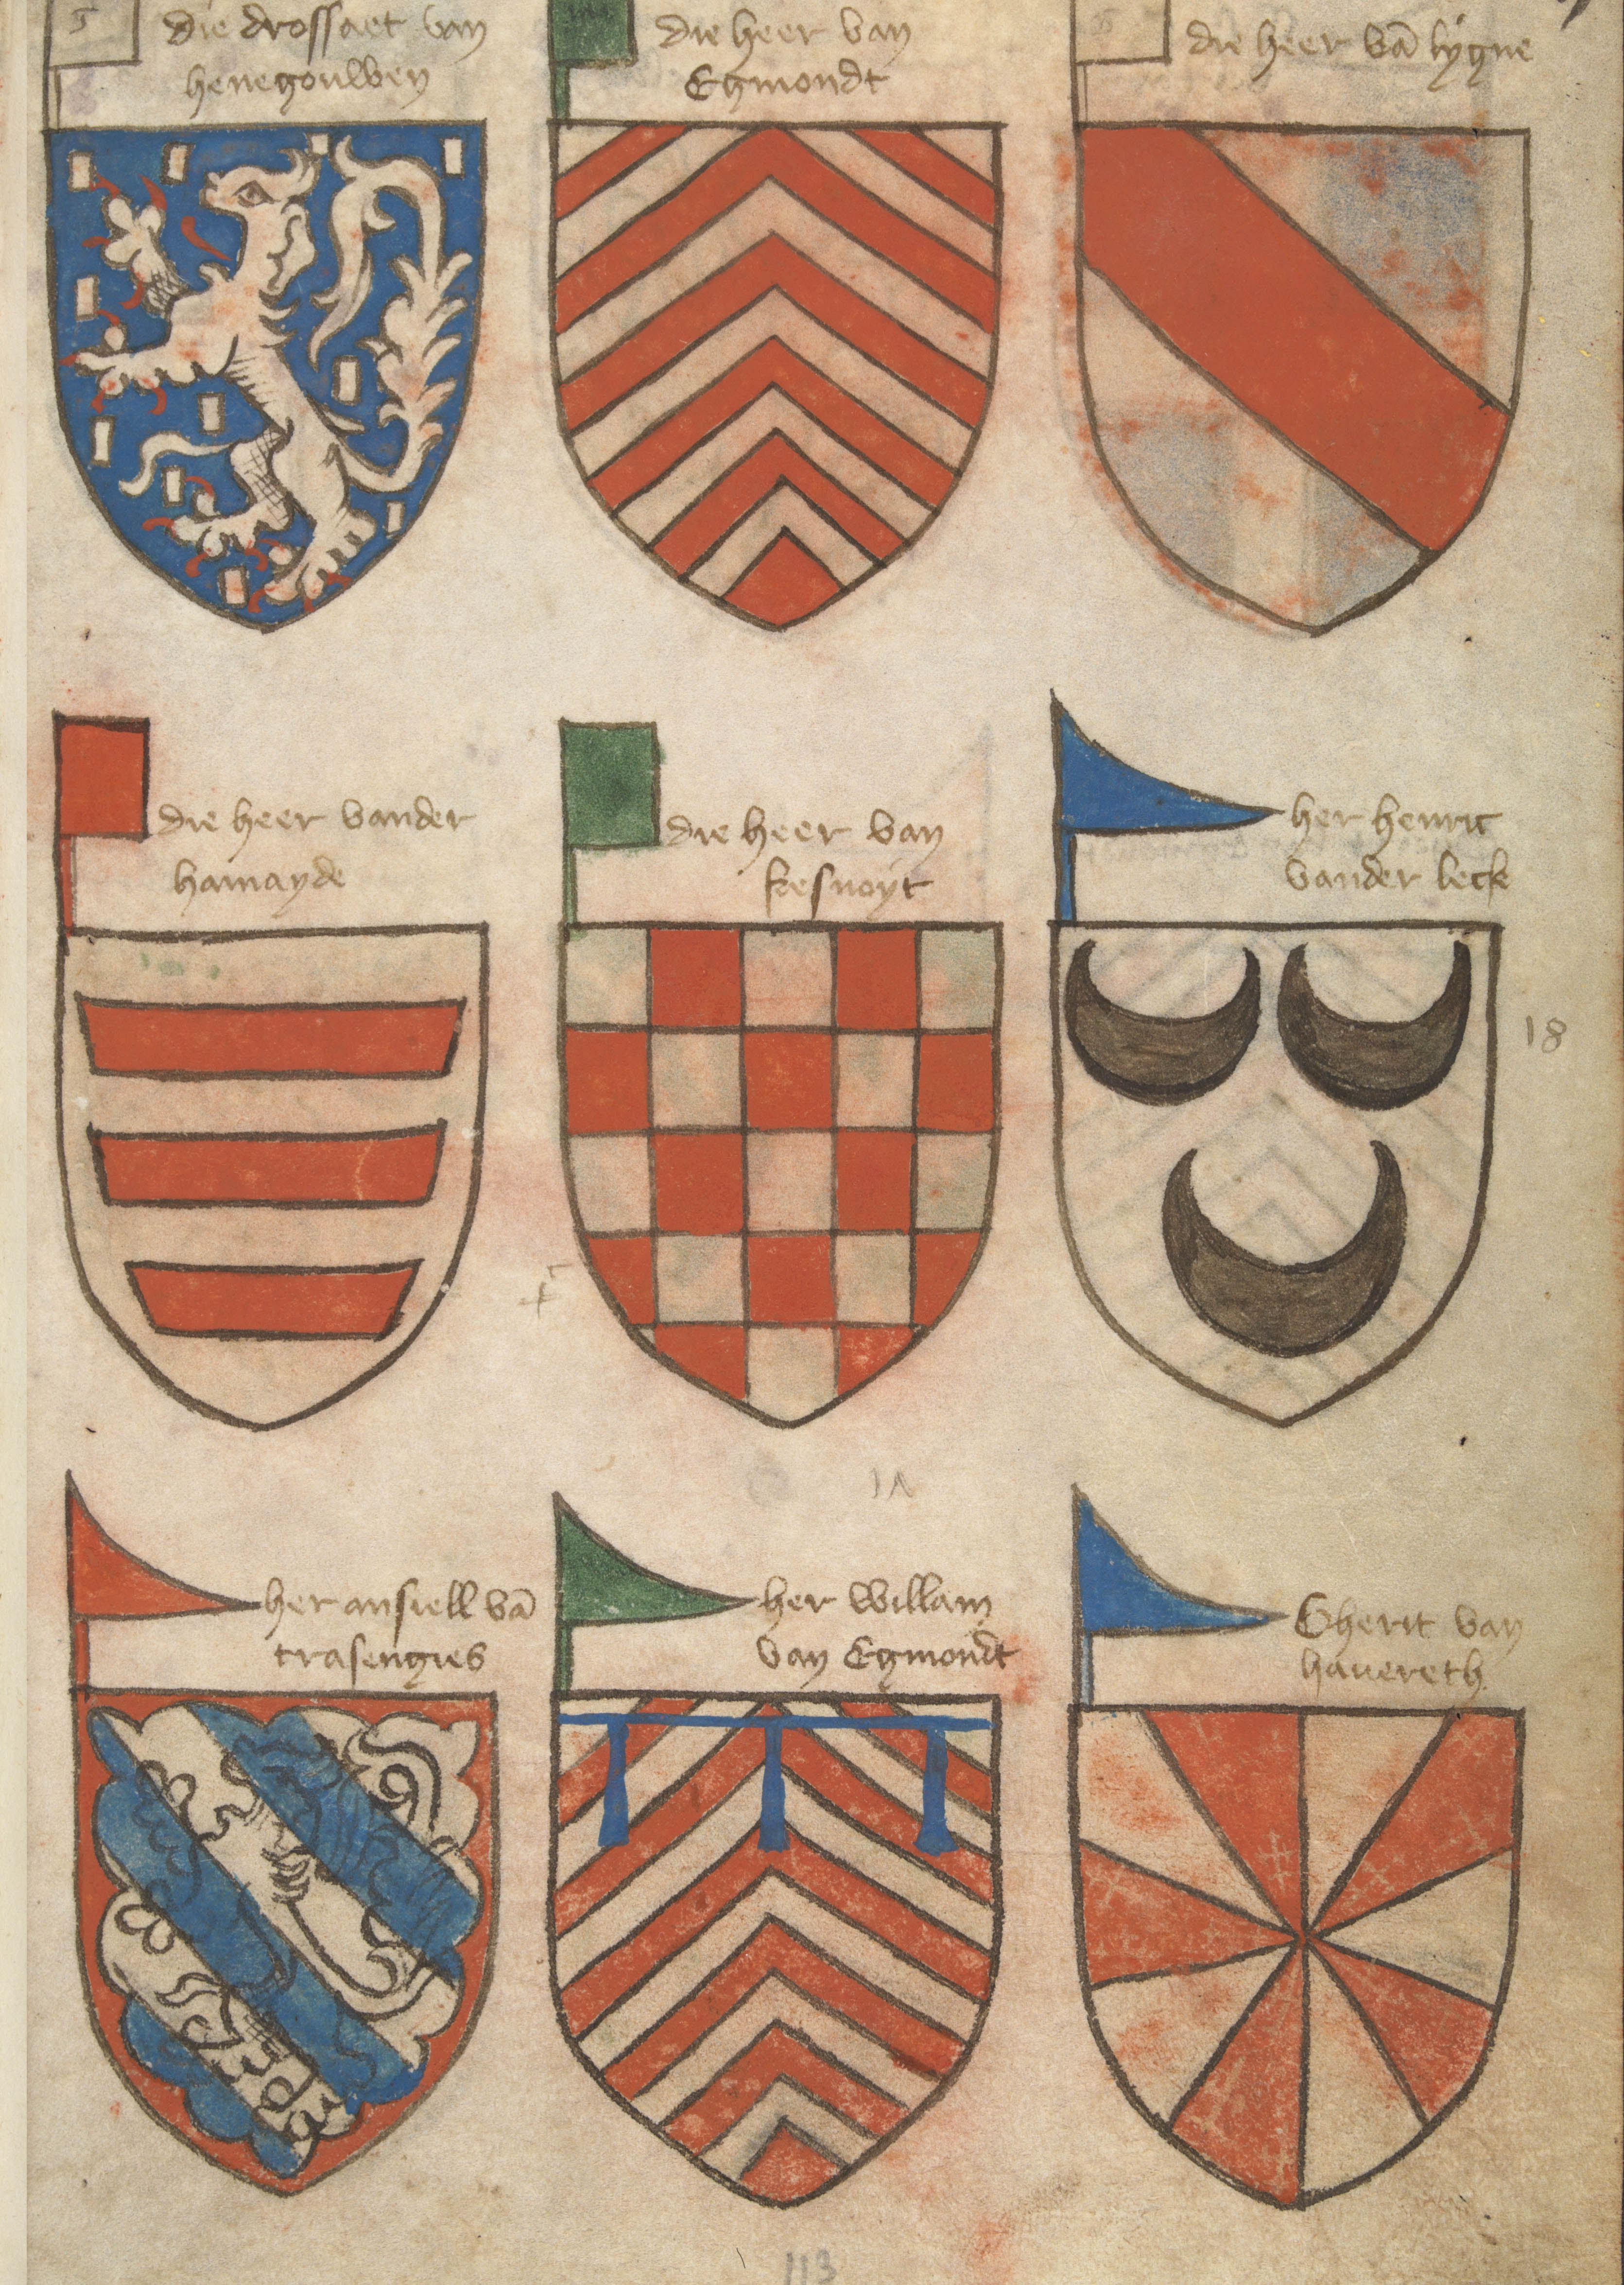 die drossaet van
henegouwen
die heer van
Egmondt
die heer vā lÿgne
die heer vander
hamayde
die heer van
kesnoÿt
her henric
vander lecke
18
her ansiell vā
trasengies
her Willam
van Egmondt
Gherit van
havereth
113